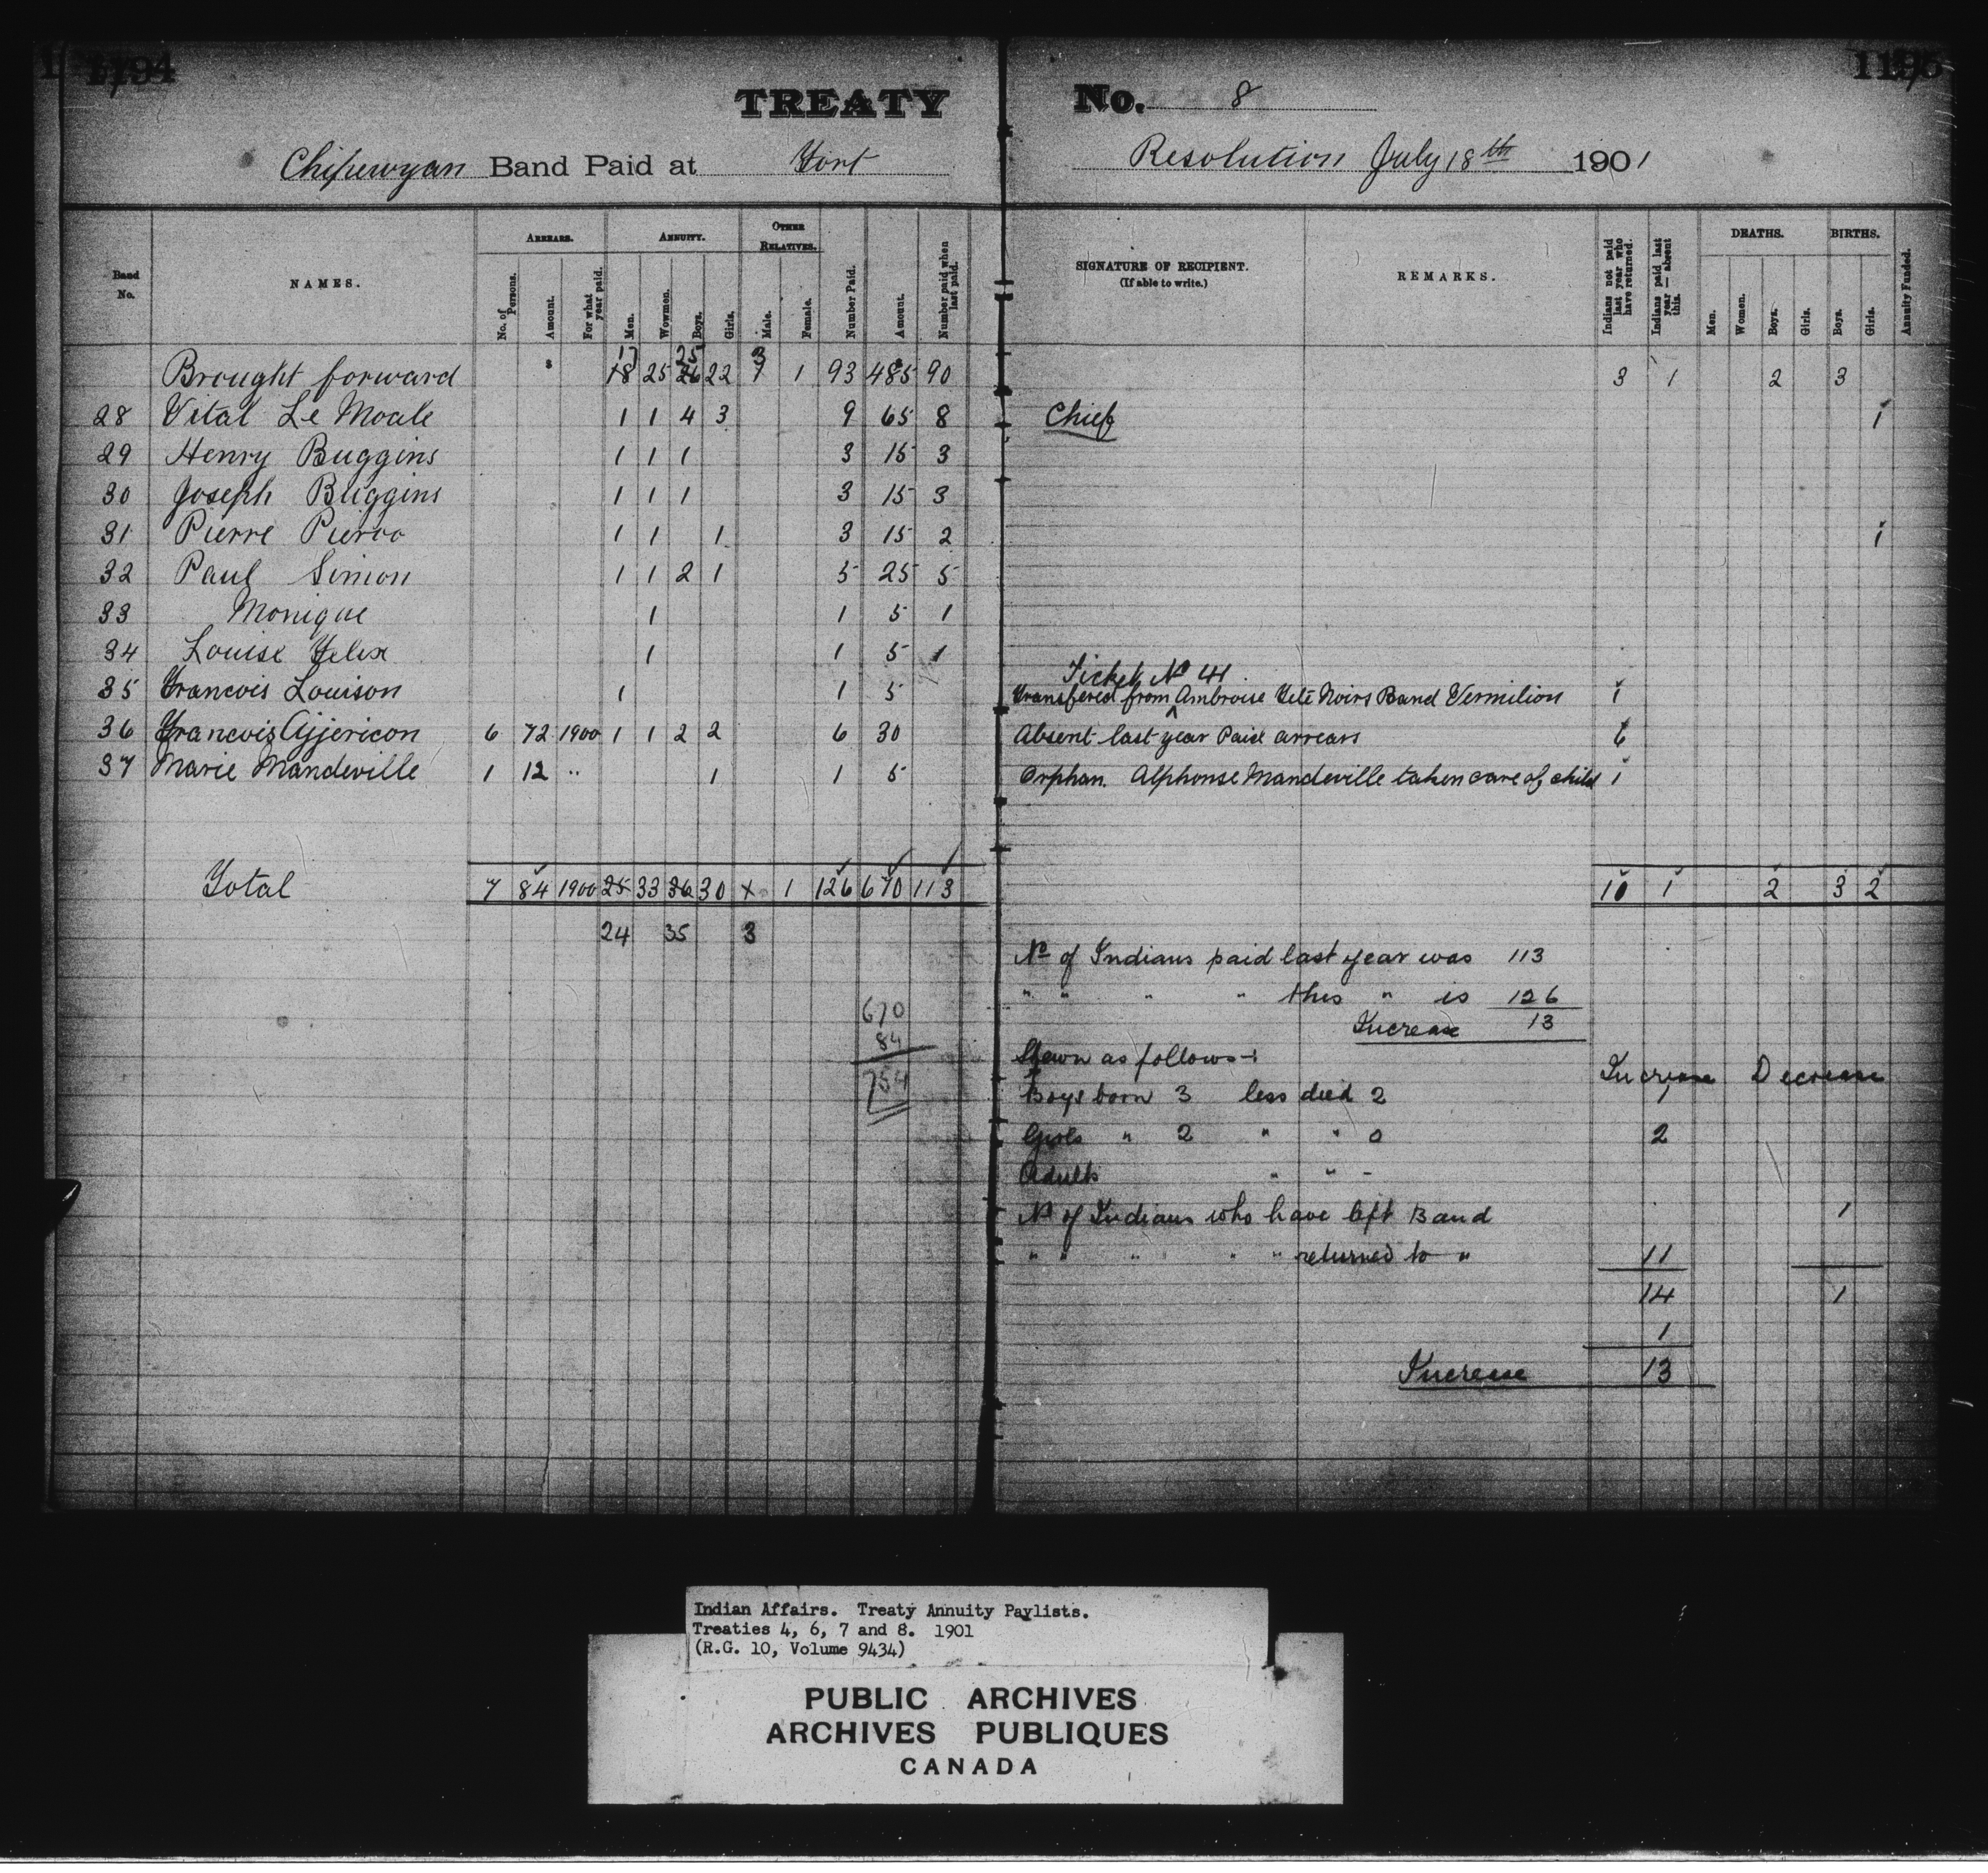 1194
1195
TREATY No. 8
Chipewyan Band Paid at Fort Resolution July 18th 1901
Band No.
NAMES.
ARREARS.
No. of Persons.
Amount.
For what year paid.
ANNUITY.
Men.
Wowmen.
Boys.
Girls.
OTHER RELATIVES.
Male.
Female.
Number Paid.
Amount.
Number paid when last paid.
SIGNATURE OF RECIPIENT.
(If able to write.)
REMARKS.
Indians not paid last year who have returned.
Indians paid last year — absent this.
DEATHS.
Men.
Women.
Boys.
Girls.
BIRTHS.
Boys.
Girls.
Annuity Funded.
17 25 3
Brought forward 18 25 26 22 1 1 93 485 90 3 1 2 3
28 Vital Le Moale 1 1 4 3 9 65 8 Chief 1
29 Henry Buggins 1 1 1 3 15 3
30 Joseph Buggins 1 1 1 3 15 3
31 Pierre Pierro 1 1 1 3 15 2 1
32 Paul Simon 1 1 2 1 5 25 5
33 Monique 1 1 5 1
34 Louise Felix 1 1 5 1
Ticket No 41
35 Francois Louison 1 1 5 Transfered from Ambroise Tete Noirs Band Vermilion 1
36 Francois Ajjericon 6 72 1900 1 1 2 2 6 30 Absent last year Paid arrears 6
37 Marie Mandeville 1 12 " 1 1 5 Orphan. Alphonse Mandeville taken care of child 1
Total 7 84 1900 25 33 36 30 x 1 126 670 113 10 1 2 3 2
24 35 3
670
84
754
No of Indians paid last year was 113
" " " " this " is 126
Increase 13
Shewn as follows:
Increase Decrease
Boys born 3 less died 2 1
Girls " 2 " " 0 2
Adults " " -
No of Indians who have left Band 1
" " " " " returned to " 11
14 1
1
Increase 13
Indian Affairs. Treaty Annuity Paylists.
Treaties 4, 6, 7 and 8. 1901
(R.G. 10, Volume 9434)
PUBLIC ARCHIVES
ARCHIVES PUBLIQUES
CANADA